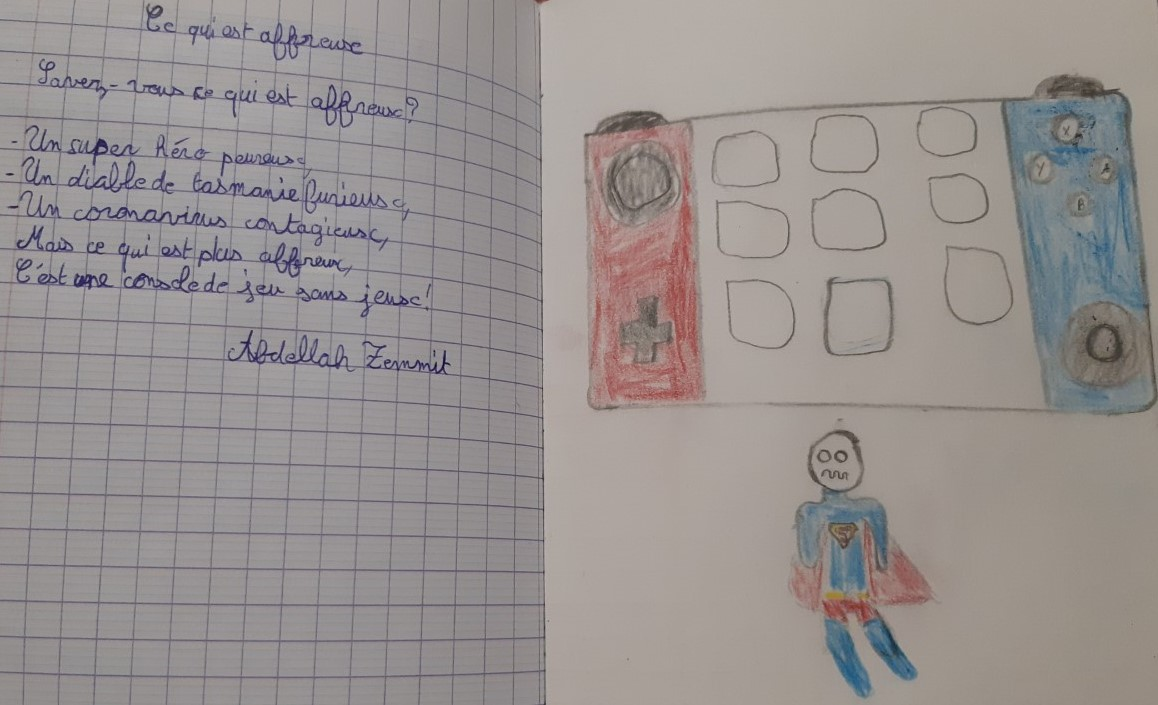 Ce qui est affreux
Savez-vous ce qui est affreux?
-Un super héro peureux,
-Un diable de tasmanie furieux,
-Un coronavirus contagieux,
Mais ce qui est plus affreux,
C'est une console de jeu sans jeux!
Abdellah Zemmit
X
Y A
B
S